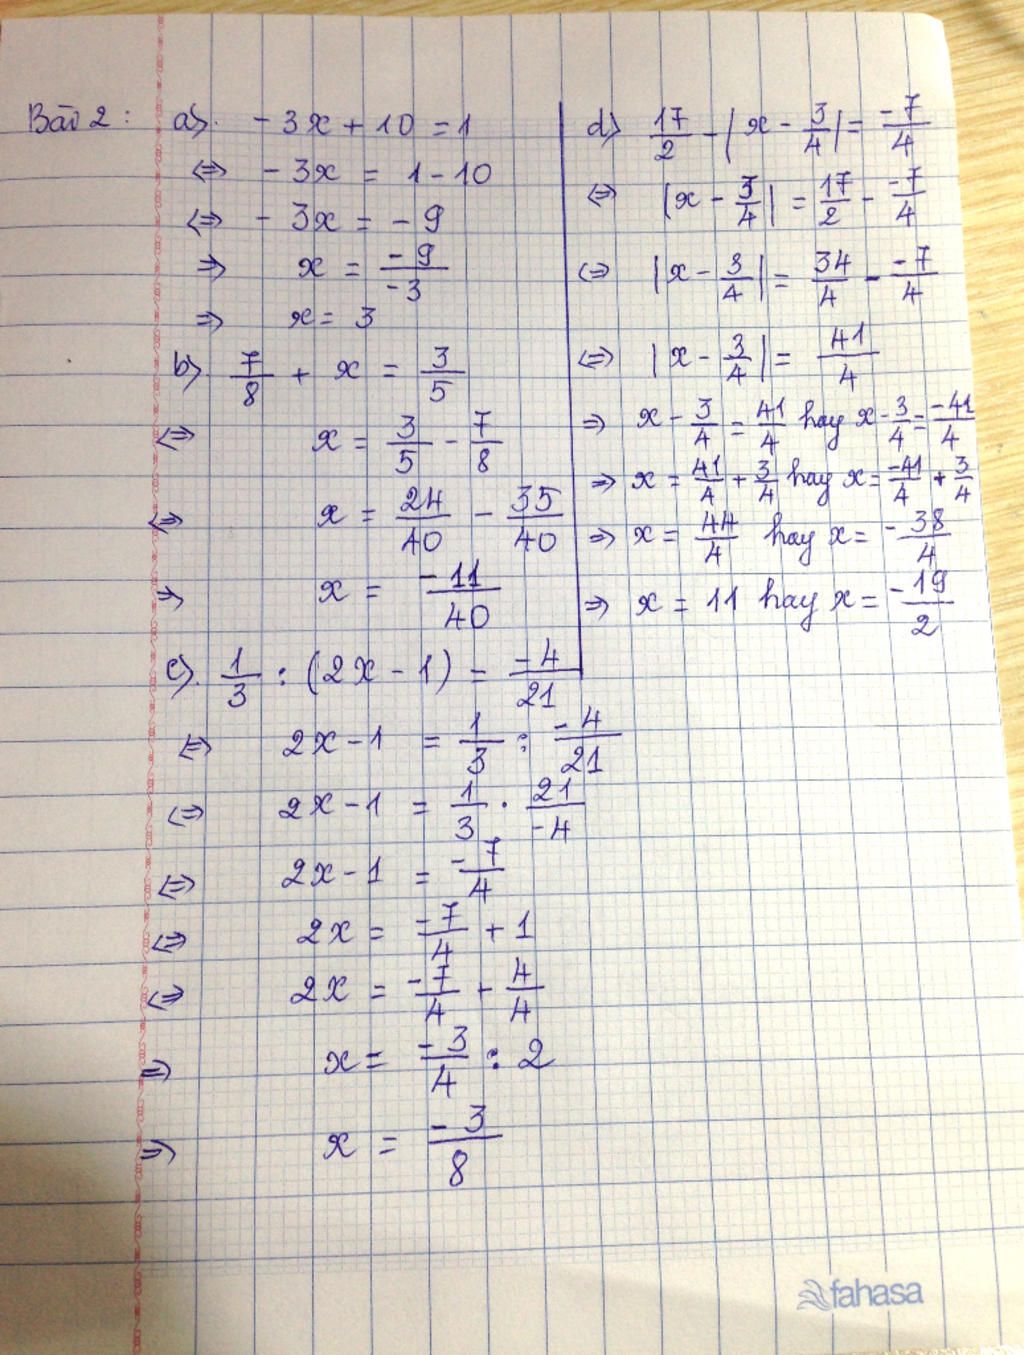 Bài 2 : a) - 3x + 10 = 1
⇔ - 3x = 1 - 10
⇔ - 3x = - 9
⇒ x = -9/-3
⇒ x = 3
b) 7/8 + x = 3/5
⇔ x = 3/5 - 7/8
⇔ x = 24/40 - 35/40
⇒ x = -11/40
c) 1/3 : (2x - 1) = -4/21
⇔ 2x - 1 = 1/3 : -4/21
⇔ 2x - 1 = 1/3 . 21/-4
⇔ 2x - 1 = -7/4
⇔ 2x = -7/4 + 1
⇔ 2x = -7/4 + 4/4
⇒ x = -3/4 : 2
⇒ x = -3/8
d) 17/2 - |x - 3/4| = -7/4
⇔ |x - 3/4| = 17/2 - -7/4
⇔ |x - 3/4| = 34/4 - -7/4
⇔ |x - 3/4| = 41/4
⇒ x - 3/4 = 41/4 hay x - 3/4 = -41/4
⇒ x = 41/4 + 3/4 hay x = -41/4 + 3/4
⇒ x = 44/4 hay x = -38/4
⇒ x = 11 hay x = -19/2
fahasa